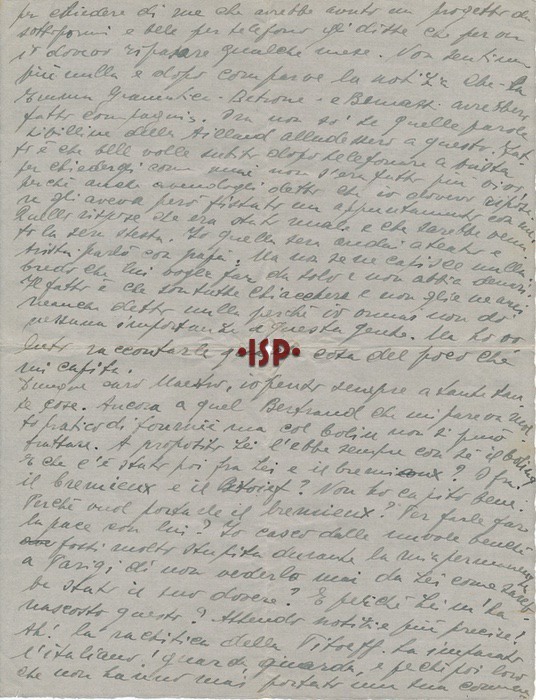 per chiedere di me che avrebbe avuto un progetto da
sottopormi e bebe per telefono gli disse che per ora
io dovevo riposare qualche mese. Non sentimmo
più nulla e dopo comparve la notizia che la
Emma Gramatica - Betrone - e Benassi avrebbero
fatto compagnia. Ora non so se quelle parole
sibilline della Aillaud alludessero a questo. Fat
to è che bebe volle subito dopo telefonare a
per chiedergli come mai non s'era fatto più vivo,
perchè anche avendogli detto che io dovevo riposa
re gli aveva però fissato un appuntamento con
Quello rispose che era stato male e che sarebbe venu
to la sera stessa. Io quella sera andai a teatro e
parlò con papà. Ma non se ne capisce nulla.
credo che lui voglia far da solo e non abbia denari.
Il fatto è che son tutte chiacchere e non glie ne avrei
neanche detto nulla perchè io ormai non do
nessuna importanza a questa gente. Ma ho vo
luto raccontarle cosa del poco che
•ISP•
mi capita.
Dunque caro Maestro, io penso sempre a tante tan
te cose. Ancora a quel Bertrand che mi pareva mol
to pratico di fournir ma col bolin non si può
A proposito Lei l'ebbe sempre con sè il
E che c'è stato poi fra Lei e il bremieux? O fra
il bremieux e il ? Non ho capito bene.
Perchè vuol portarle il bremieux? Per farle fare
la pace con lui? Io casco dalle nuvole benchè
fossi molto stupita durante la mia permanenza
a Parigi di non vederlo mai da Lei come sareb
be stato il suo dovere? E perchè Lei m'ha
nascosto questo? Attendo notizie più precise!
Ah! la della Pitoeff ha imparato
l'italiano! guarda guarda, e perchè poi loro
che non hanno mai portato una sua